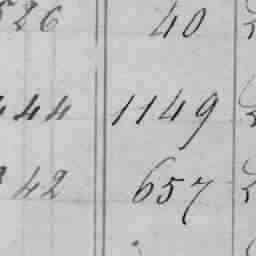 526 40
444 1149
42 657